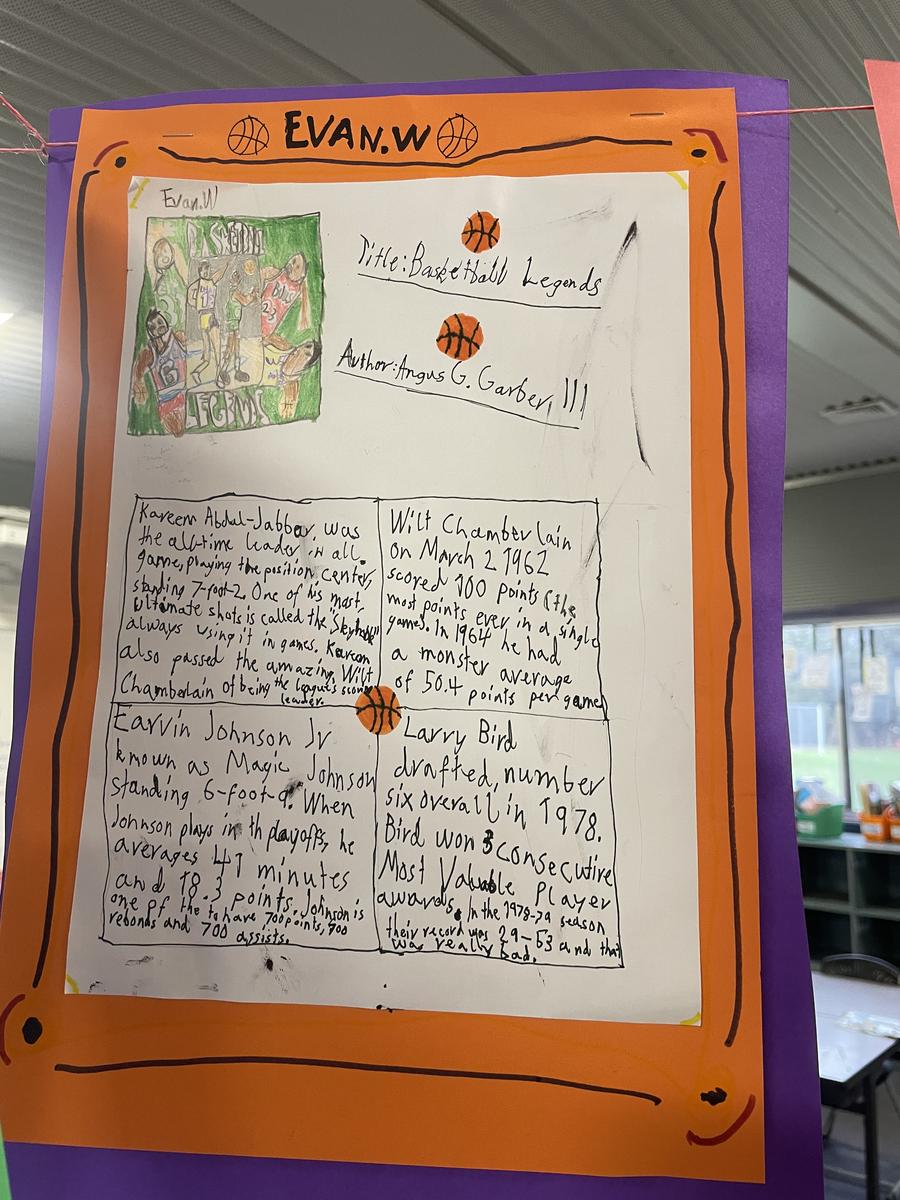 EVAN.W
Evan.W
BASKETBALL
BULLS
23
6
LEGENDS
Title: Basketball Legends
Author: Angus G. Garber, III
Kareem Abdul-Jabbar, was
the all-time leader in all
game, playing the position center,
standing 7-foot-2. One of his most
ultimate shots is called the "Skyhook"
always using it in games. Kareem
also passed the amazing Wilt
Chamberlain of being the league's scoring
leader.
Wilt Chamberlain
on March 2 1962
scored 100 points (the
most points ever in a single
game). In 1964 he had
a monster average
of 50.4 points per game
Earvin Johnson Jr
known as Magic Johnson
standing 6-foot-9. When
Johnson plays in th playoffs, he
averages 41 minutes
and 18.3 points. Johnson is
one of the to have 700 points, 700
rebonds and 700 assists.
Larry Bird
drafted, number
six overall in 1978.
Bird won 3 consecutive
Most Valuable Player
awards. In the 1978-79 season
their record was 29-53 and that
was really bad.